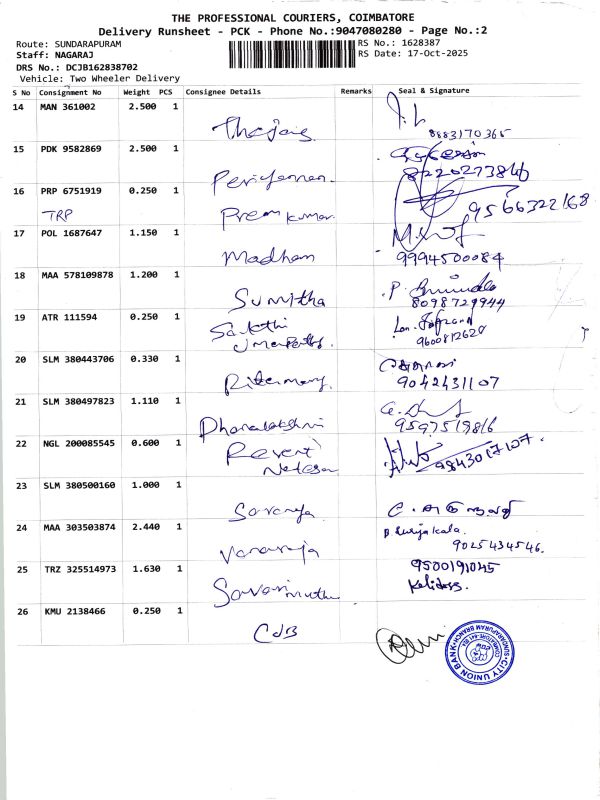 THE PROFESSIONAL COURIERS, COIMBATORE
Delivery Runsheet - PCK - Phone No.:9047080280 - Page No.:2
Route: SUNDARAPURAM
RS No.: 1628387
Staff: NAGARAJ
RS Date: 17-Oct-2025
DRS No.: DCJB162838702
Vehicle: Two Wheeler Delivery
S No Consignment No Weight PCS Consignee Details Remarks Seal & Signature
14 MAN 361002 2.500 1
8883170365
15 PDK 9582869 2.500 1
16 PRP 6751919 0.250 1
9566322168
TRP Prem Kumar
17 POL 1687647 1.150 1
Madhan 9994500084
18 MAA 578109878 1.200 1
Sumitha 8098729944
19 ATR 111594 0.250 1
Sakthi 9600812624
20 SLM 380443706 0.330 1
9042431107
21 SLM 380497823 1.110 1
Dhanalakshmi 9597519816
22 NGL 200085545 0.600 1
9843017107
23 SLM 380500160 1.000 1
24 MAA 303503874 2.440 1
Vanaraja 9025434546.
25 TRZ 325514973 1.630 1 9500191045
Savarimuthu Kalidass.
26 KMU 2138466 0.250 1
CUB
CITY UNION BANK
SUNDARAPURAM BRANCH